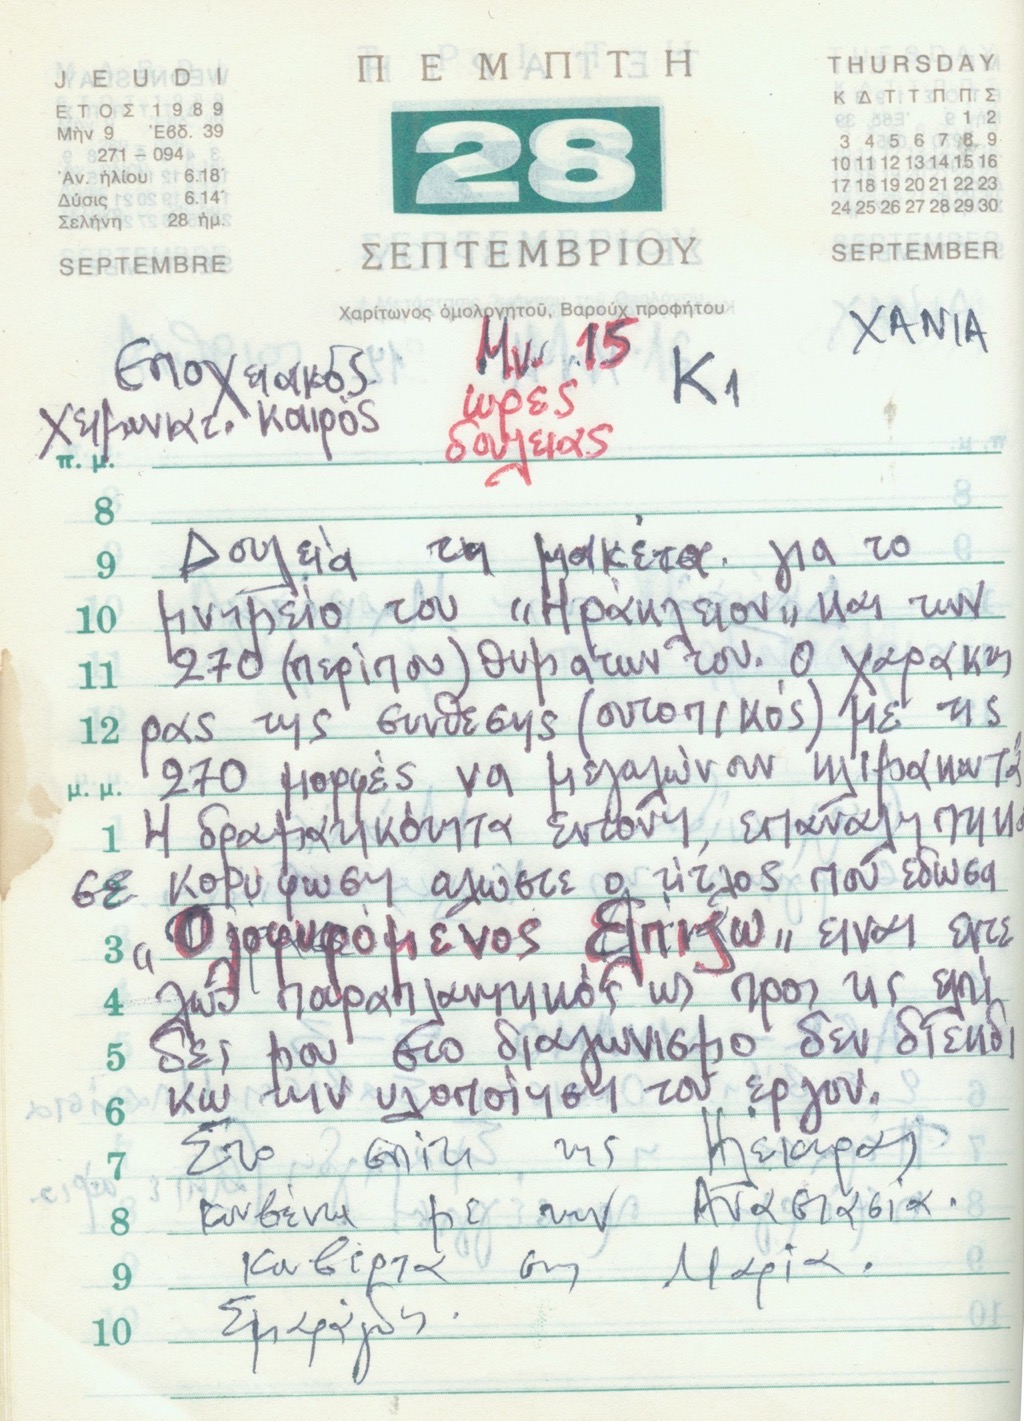 JEUDI
ΕΤΟΣ 1989
Μὴν 9 Ἑβδ. 39
271 – 094
Ἀν. ἡλίου 6.18΄
Δύσις 6.14΄
Σελήνη 28 ἡμ.
SEPTEMBRE
ΠΕΜΠΤΗ
28
ΣΕΠΤΕΜΒΡΙΟΥ
Χαρίτωνος ὁμολογητοῦ, Βαρούχ προφήτου
THURSDAY
Κ Δ Τ Τ Π Π Σ
1 2
3 4 5 6 7 8 9
10 11 12 13 14 15 16
17 18 19 20 21 22 23
24 25 26 27 28 29 30
SEPTEMBER
ΧΑΝΙΑ
Εποχειακός
χειμωνιατ. καιρὸς
15
ὡρες
δουλειας
Κ1
π. μ.
8
9 Δουλειὰ τη μακέτα. για το
10 μνημείο του "Ηράκλειον" και των
11 270 (περίπου) θυμάτων του. Ο χαρακτη
12 ρας της συνθεσης (ουτοπικός) με τις
μ. μ. 270 μορφὲς να μεγαλώνουν κλιμακωτά
1 Η δραματικότητα εντονη, επαναληπτικὰ
2 σε κορυφωση αλωστε ο τίτλος που εδωσα
3 "Ολοφυρόμενος Ελπίζω" ειναι εντε
4 λώς παραπλανητικός ως προς τις ελπί
5 δες μου στο διαγωνισμο δεν διεκδι
6 κω την υλοποίηση του έργου.
7 Στο σπίτι της
8 κουβέντα με την Αναστασία.
9 Κουβέρτα στη Μαρία.
10 Σμαράγδη.